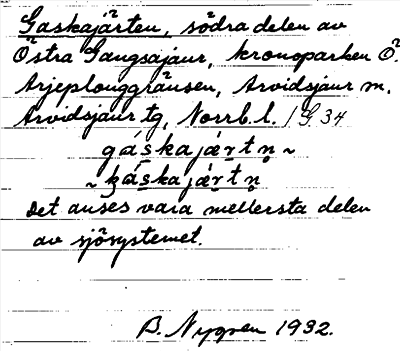 Gaskajärten, södra delen av
Östra Gaugsajaur, kronoparken Ö.
Arjeplouggränsen, Arvidsjaur m,
Arvidsjaur tg, Norrb. l. / G. 34
gáskajártn̥ ~
~ káskajártn̥
Det anses vara mellersta delen
av sjösystemet.
B. Nygren 1932.